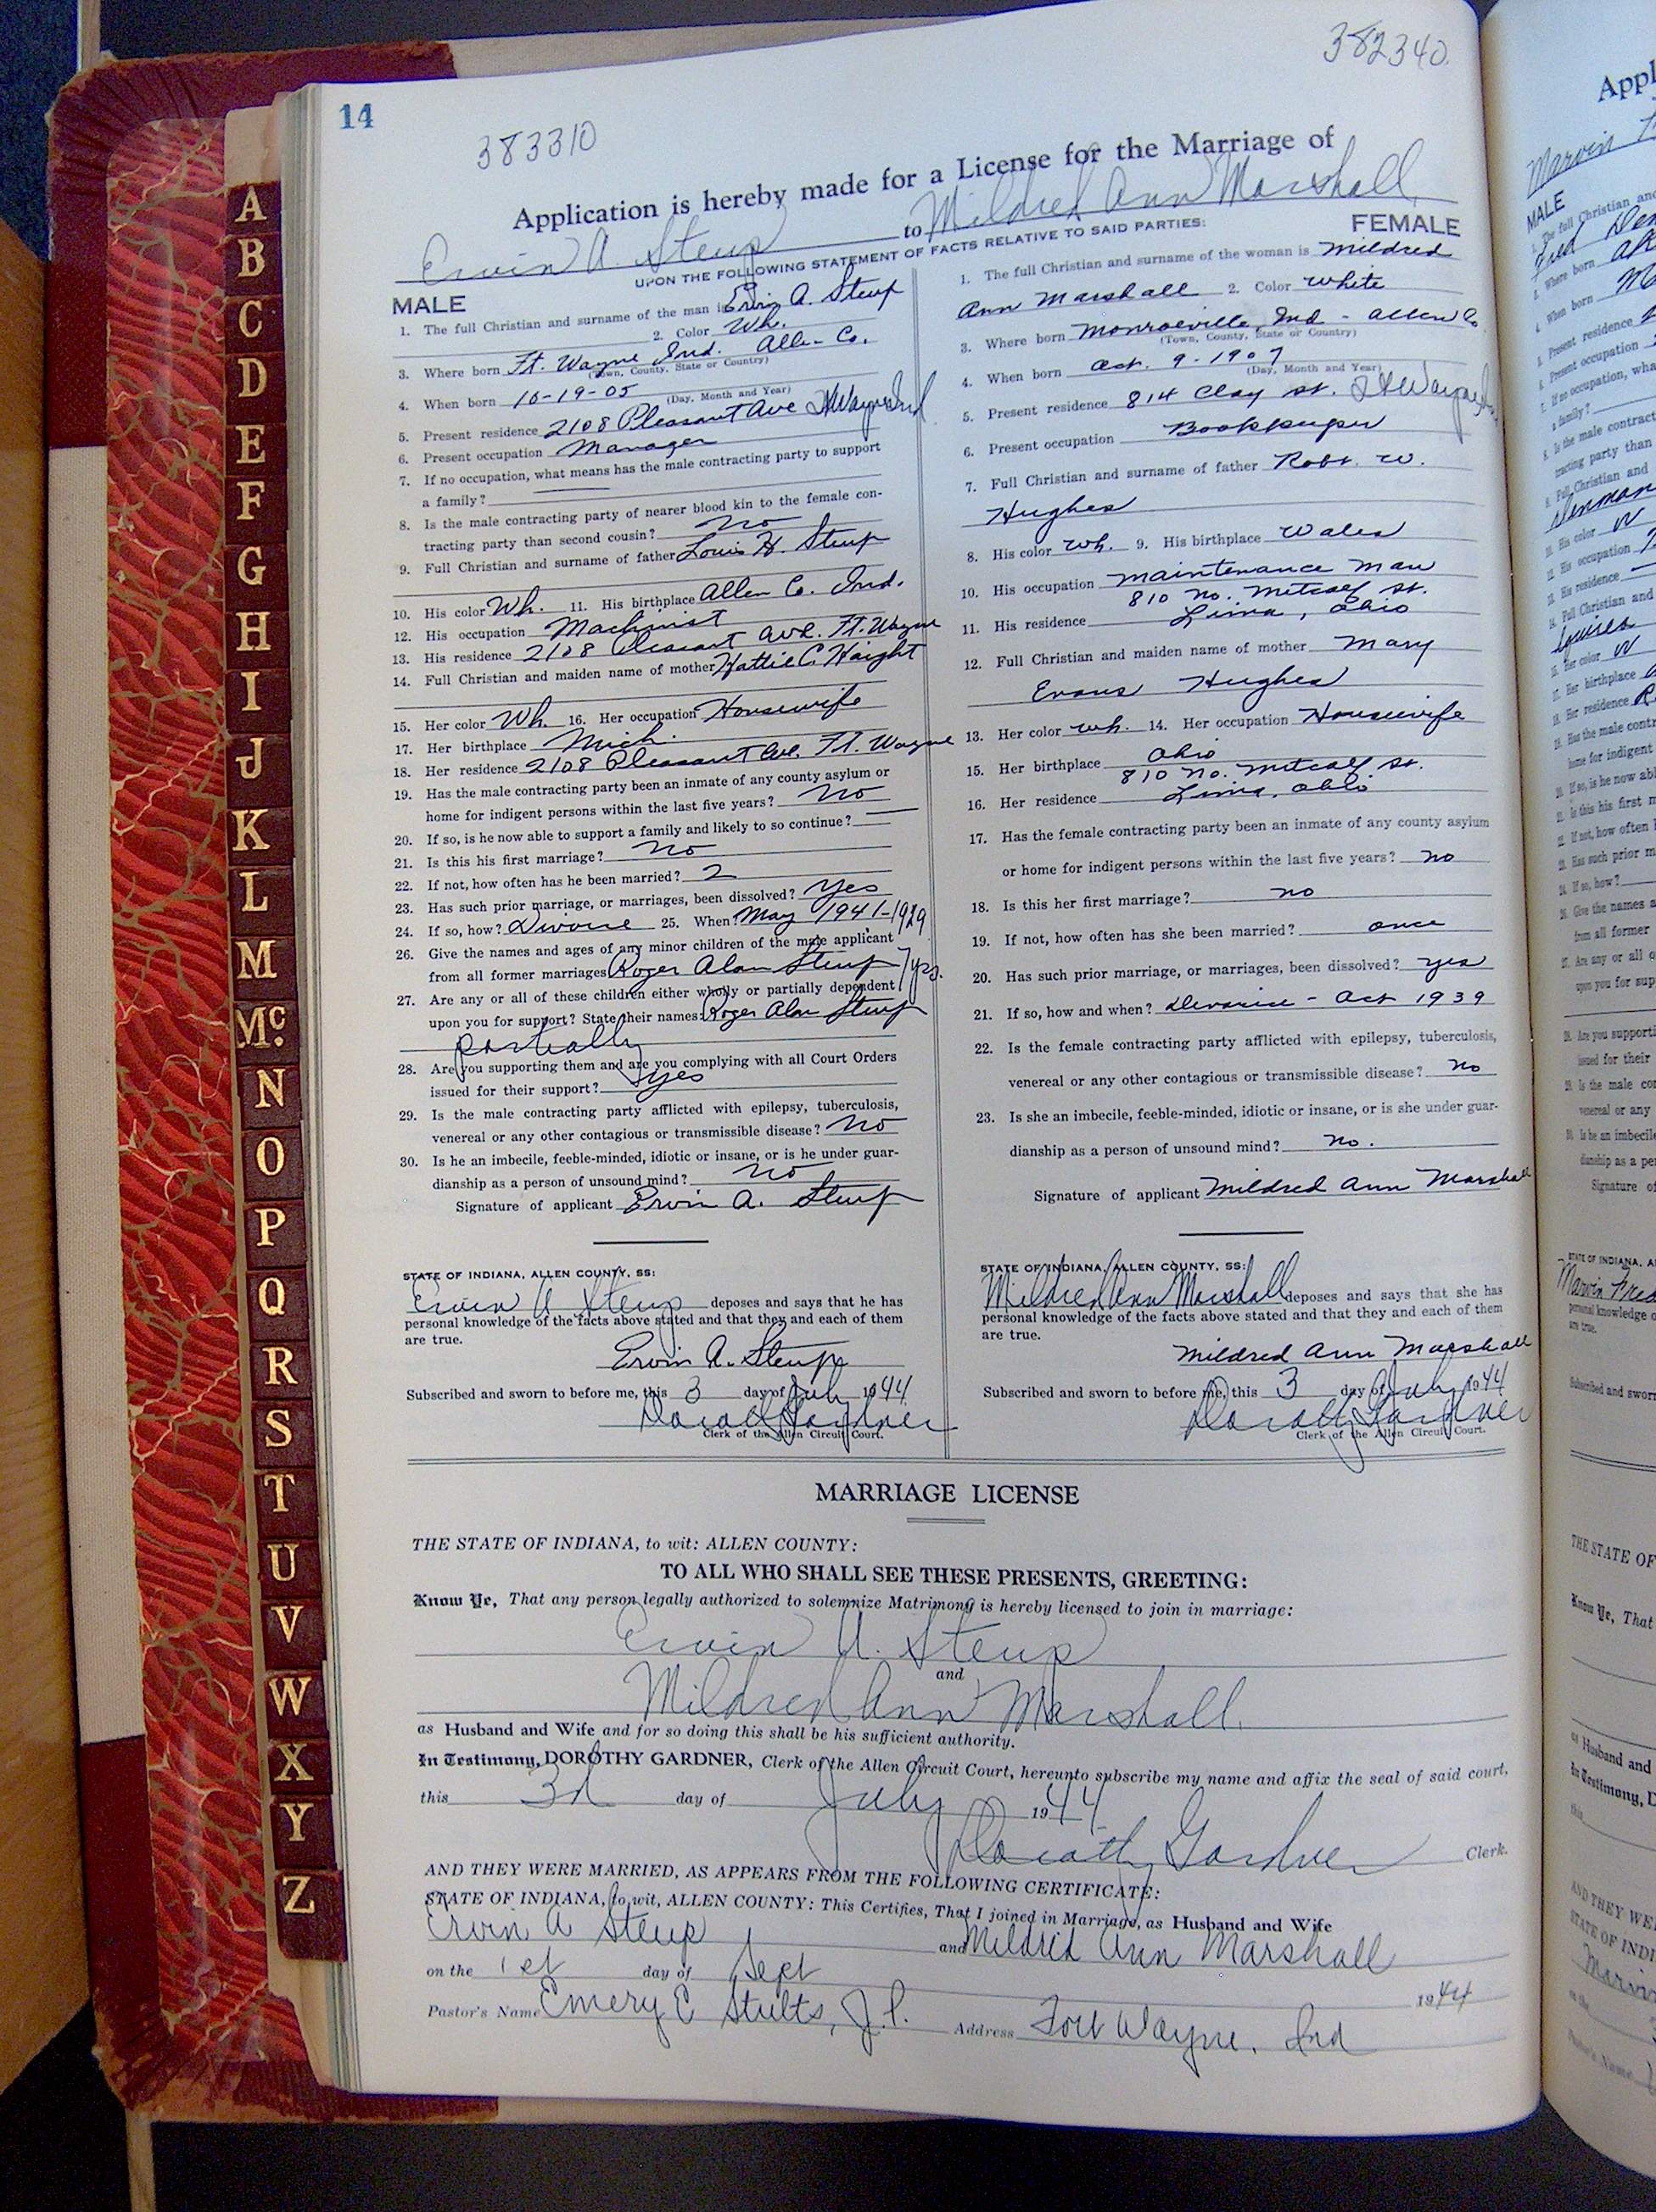 382340
14
383310
Application is hereby made for a License for the Marriage of
Ervin A. Steup to Mildred Ann Marshall
UPON THE FOLLOWING STATEMENT OF FACTS RELATIVE TO SAID PARTIES:
MALE
1. The full Christian and surname of the man is Ervin A. Steup
2. Color Wh.
3. Where born Ft. Wayne Ind. Allen Co.
(Town, County, State or Country)
4. When born 10-19-05
(Day, Month and Year)
5. Present residence 2108 Pleasant Ave Ft Wayne Ind
6. Present occupation Manager
7. If no occupation, what means has the male contracting party to support
a family?
8. Is the male contracting party of nearer blood kin to the female con-
tracting party than second cousin? No
9. Full Christian and surname of father Louis H. Steup
10. His color Wh. 11. His birthplace Allen Co. Ind.
12. His occupation Machinist
13. His residence 2108 Pleasant Ave. Ft. Wayne
14. Full Christian and maiden name of mother Hattie C. Haight
15. Her color Wh. 16. Her occupation Housewife
17. Her birthplace Mich.
18. Her residence 2108 Pleasant Ave. Ft. Wayne
19. Has the male contracting party been an inmate of any county asylum or
home for indigent persons within the last five years? No
20. If so, is he now able to support a family and likely to so continue?
21. Is this his first marriage? No
22. If not, how often has he been married? 2
23. Has such prior marriage, or marriages, been dissolved? Yes
24. If so, how? Divorce 25. When? May 1941-1929
26. Give the names and ages of any minor children of the male applicant
from all former marriages Roger Alan Steup 7 yrs.
27. Are any or all of these children either wholly or partially dependent
upon you for support? State their names: Roger Alan Steup
partially
28. Are you supporting them and are you complying with all Court Orders
issued for their support? yes
29. Is the male contracting party afflicted with epilepsy, tuberculosis,
venereal or any other contagious or transmissible disease? No
30. Is he an imbecile, feeble-minded, idiotic or insane, or is he under guar-
dianship as a person of unsound mind? No
Signature of applicant Ervin A. Steup
STATE OF INDIANA, ALLEN COUNTY, SS:
Ervin A Steup deposes and says that he has
personal knowledge of the facts above stated and that they and each of them
are true.
Ervin A. Steup
Subscribed and sworn to before me, this 3 day of July 1944
Dorothy Gardner
Clerk of the Allen Circuit Court.
FEMALE
1. The full Christian and surname of the woman is Mildred
Ann Marshall 2. Color White
3. Where born Monroeville, Ind - Allen Co
(Town, County, State or Country)
4. When born Oct. 9-1907
(Day, Month and Year)
5. Present residence 814 Clay St. Ft Wayne
6. Present occupation Bookkeeper
7. Full Christian and surname of father Robt. W.
Hughes
8. His color Wh. 9. His birthplace Wales
10. His occupation Maintenance Man
810 No. Metcalf St.
11. His residence Lima, Ohio
12. Full Christian and maiden name of mother Mary
Evans Hughes
13. Her color wh. 14. Her occupation Housewife
15. Her birthplace Ohio
810 No. Metcalf St.
16. Her residence Lima, Ohio
17. Has the female contracting party been an inmate of any county asylum
or home for indigent persons within the last five years? no
18. Is this her first marriage? no
19. If not, how often has she been married? once
20. Has such prior marriage, or marriages, been dissolved? yes
21. If so, how and when? Divorce - Oct 1939
22. Is the female contracting party afflicted with epilepsy, tuberculosis,
venereal or any other contagious or transmissible disease? no
23. Is she an imbecile, feeble-minded, idiotic or insane, or is she under guar-
dianship as a person of unsound mind? no.
Signature of applicant Mildred Ann Marshall
STATE OF INDIANA, ALLEN COUNTY, SS:
Mildred Ann Marshall deposes and says that she has
personal knowledge of the facts above stated and that they and each of them
are true.
Mildred Ann Marshall
Subscribed and sworn to before me, this 3 day of July 1944
Dorothy Gardner
Clerk of the Allen Circuit Court.
MARRIAGE LICENSE
THE STATE OF INDIANA, to wit: ALLEN COUNTY:
TO ALL WHO SHALL SEE THESE PRESENTS, GREETING:
Know Ye, That any person legally authorized to solemnize Matrimony is hereby licensed to join in marriage:
Ervin A. Steup
and
Mildred Ann Marshall.
as Husband and Wife and for so doing this shall be his sufficient authority.
In Testimony, DOROTHY GARDNER, Clerk of the Allen Circuit Court, hereunto subscribe my name and affix the seal of said court,
this 3d day of July 1944
Dorothy Gardner Clerk.
AND THEY WERE MARRIED, AS APPEARS FROM THE FOLLOWING CERTIFICATE:
STATE OF INDIANA, to wit, ALLEN COUNTY: This Certifies, That I joined in Marriage, as Husband and Wife
Ervin A Steup and Mildred Ann Marshall
on the 1st day of Sept 1944
Pastor's Name Emery E Stults, J.P. Address Fort Wayne, Ind
A
B
C
D
E
F
G
H
I
J
K
L
M
Mc.
N
O
P
Q
R
S
T
U
V
W
X
Y
Z